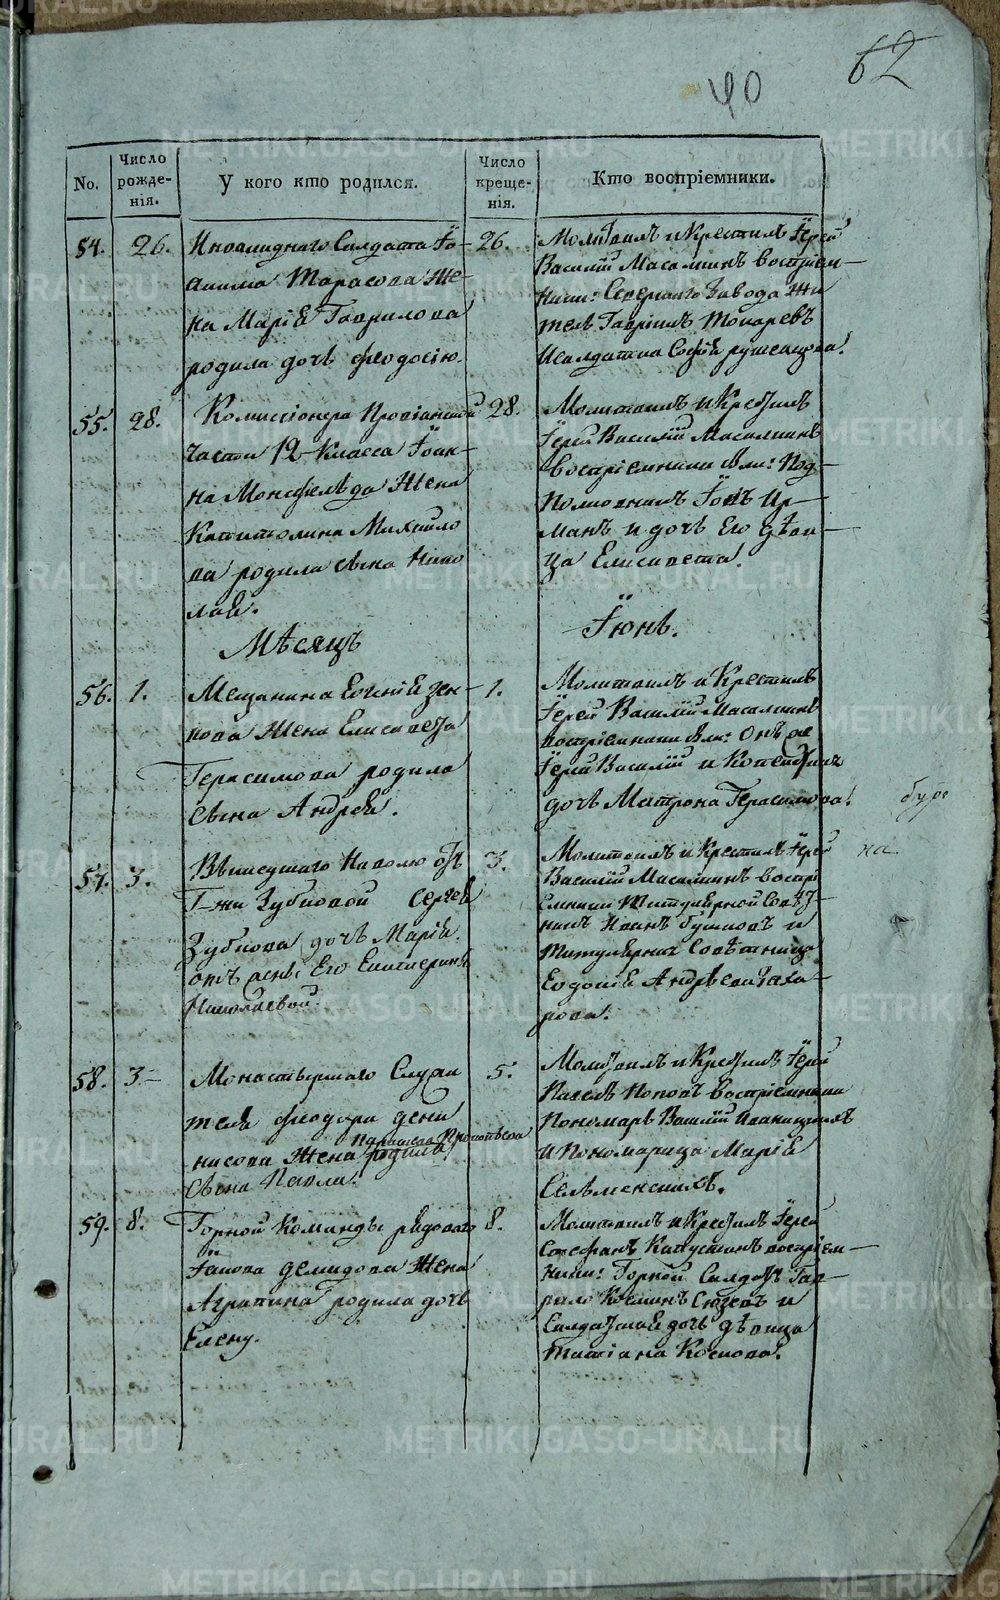 62
40
No.
Число рожде-нія.
У кого кто родился.
Число креще-нія.
Кто воспріемники.
54. 26.
Инвалиднаго Солдата Іо-
акима Тарасова же-
на Марія Гаврилова
родила дочь Феодосію.
26.
Молитвилъ и Крестилъ Іерей
Василій Масалкинъ воспріем-
ники: Середнаго Завода жи
тель Гавріилъ Токаревъ
и солдатка Софія
55. 28.
Комиссіонера Провіантской
части 12 Класса Іоан-
на жена
Капитолина Михайло
ва родила сына Нико
лая.
28.
Молитвилъ и Крестилъ
Іерей Василій Масалкинъ
воспріемники были: Под-
полковникъ
манъ и дочь Его дѣви-
ца Елисавета.
Мѣсяцъ
Іюнь.
56. 1.
Мещанина
жена Елисавета
Герасимова родила
сына Андрея.
1.
Молитвилъ и Крестилъ
Іерей Василій Масалкинъ
воспріемники были: Онъ же
Іерей Василій и
дочь Матрона Герасимова.
57. 3.
Вышедшаго на волю отъ
Г-жи Зубковой Сергея
Зубкова дочь Марія.
отъ жены Его Екатерины
Николаевой.
3.
Молитвилъ и Крестилъ Іерей
Василій Масалкинъ воспрі
емники Титулярной Совѣт-
никъ Иванъ и
титулярная Совѣтница
Андреева Заха-
рова.
на
58. 3.
Монастырскаго Служи
теля Феодора Дени
сова жена Параскева Прокопьева родила
сына Павла.
5.
Молитвилъ и Крестилъ Іерей
Павелъ Поповъ воспріемники
Пономарь Василій
и Пономарица Марія
59. 8.
Горной Команды рядоваго
Іакова Демидова жена
Агрипина родила дочь
Елену.
8.
Молитвилъ и Крестилъ Іерей
Стефанъ Капустинъ воспріем-
ники: Горной Солдатъ Гав-
рило и
Солдатская дочь дѣвица
Татіана Космова.
METRIKI.GASO-URAL.RU